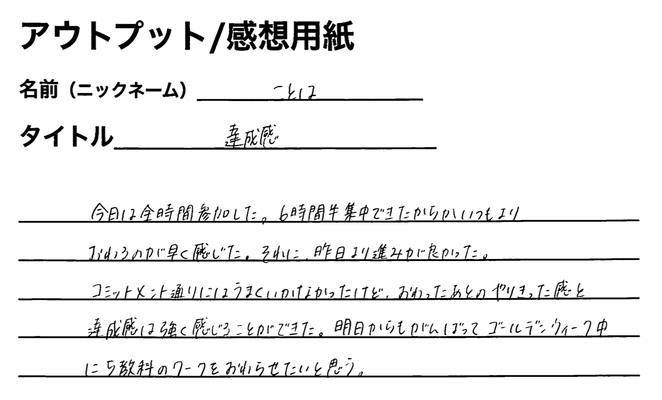 アウトプット/感想用紙
名前（ニックネーム） ことは
タイトル 達成感
今日は全時間参加した。6時間半集中できたからかいつもより
おわるのが早く感じた。それに、昨日より進みが良かった。
コミットメント通りにはうまくいかなかったけど、おわったあとのやりきった感と
達成感は強く感じることができた。明日からもがんばってゴールデンウィーク中
に5教科のワークをおわらせたいと思う。